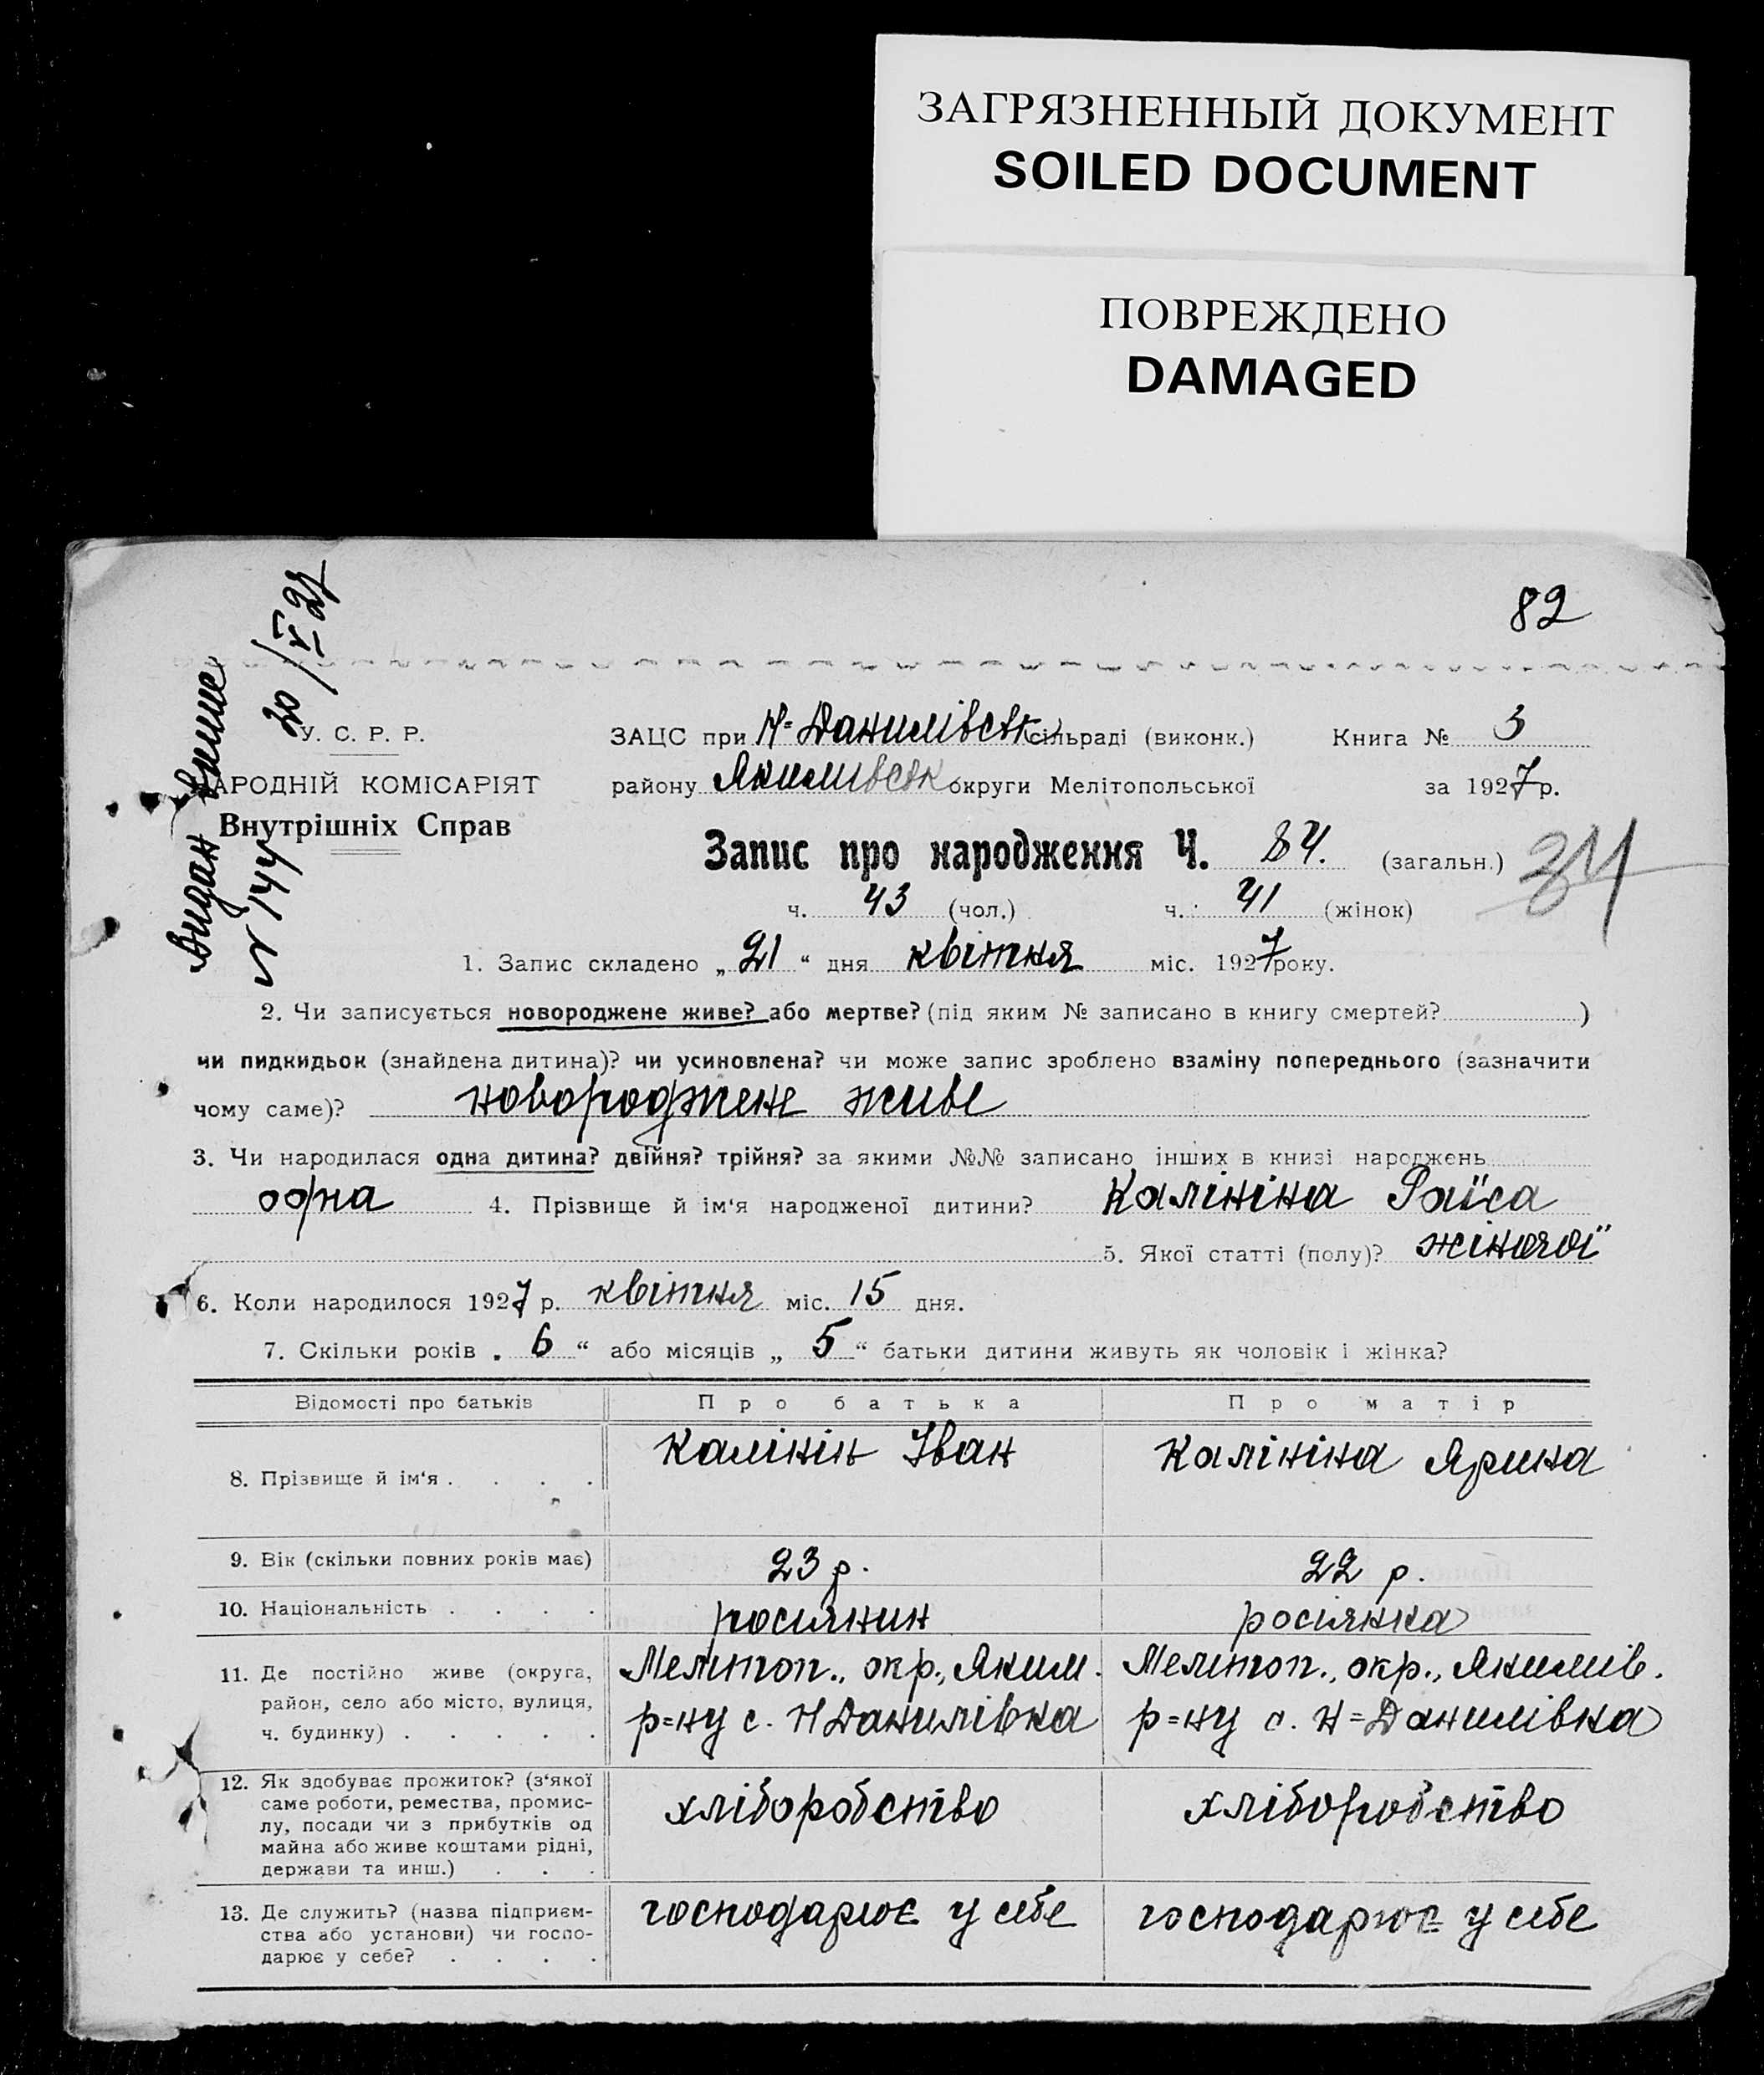 ЗАГРЯЗНЕННЫЙ ДОКУМЕНТ
SOILED DOCUMENT
ПОВРЕЖДЕНО
DAMAGED
82
Видан
№ 144
30/V 27
У. С. Р. Р.
НАРОДНІЙ КОМІСАРІЯТ
Внутрішніх Справ
ЗАЦС при Н=Данилівськ сільраді (виконк.) Книга № 3
району Якимівськ округи Мелітопольської за 1927 р.
Запис про народження Ч. 84. (загальн.) 84
ч. 43 (чол.) ч. 41 (жінок)
1. Запис складено „ 21 “ дня квітня міс. 1927 року.
2. Чи записується новороджене живе? або мертве? (під яким № записано в книгу смертей? )
чи пидкидьок (знайдена дитина)? чи усиновлена? чи може запис зроблено взаміну попереднього (зазначити
чому саме)? новороджене живе
3. Чи народилася одна дитина? двійня? трійня? за якими №№ записано інших в книзі народжень
одна 4. Прізвище й ім‘я народженої дитини? Калініна Раїса
5. Якої статті (полу)? жіночої
6. Коли народилося 1927 р. квітня міс. 15 дня.
7. Скільки років „ 6 “ або місяців „ 5 “ батьки дитини живуть як чоловік і жінка?
Відомості про батьків Про батька Про матір
8. Прізвище й ім‘я . . . . Калінін Іван Калініна Ярина
9. Вік (скільки повних років має) 23 р. 22 р.
10. Національність . . . . росіянин росіянка
11. Де постійно живе (округа, Мелітоп., окр., Яким. Мелітоп., окр., Якимів.
район, село або місто, вулиця, р=ну с. Н Данилівка р=ну с. Н=Данилівка
ч. будинку) . . . . .
12. Як здобуває прожиток? (з‘якої
саме роботи, ремества, промис- хліборобство хліборобство
лу, посади чи з прибутків од
майна або живе коштами рідні,
держави та инш.) . . .
13. Де служить? (назва підприєм- господарює у себе господарює у себе
ства або установи) чи госпо-
дарює у себе? . . . .